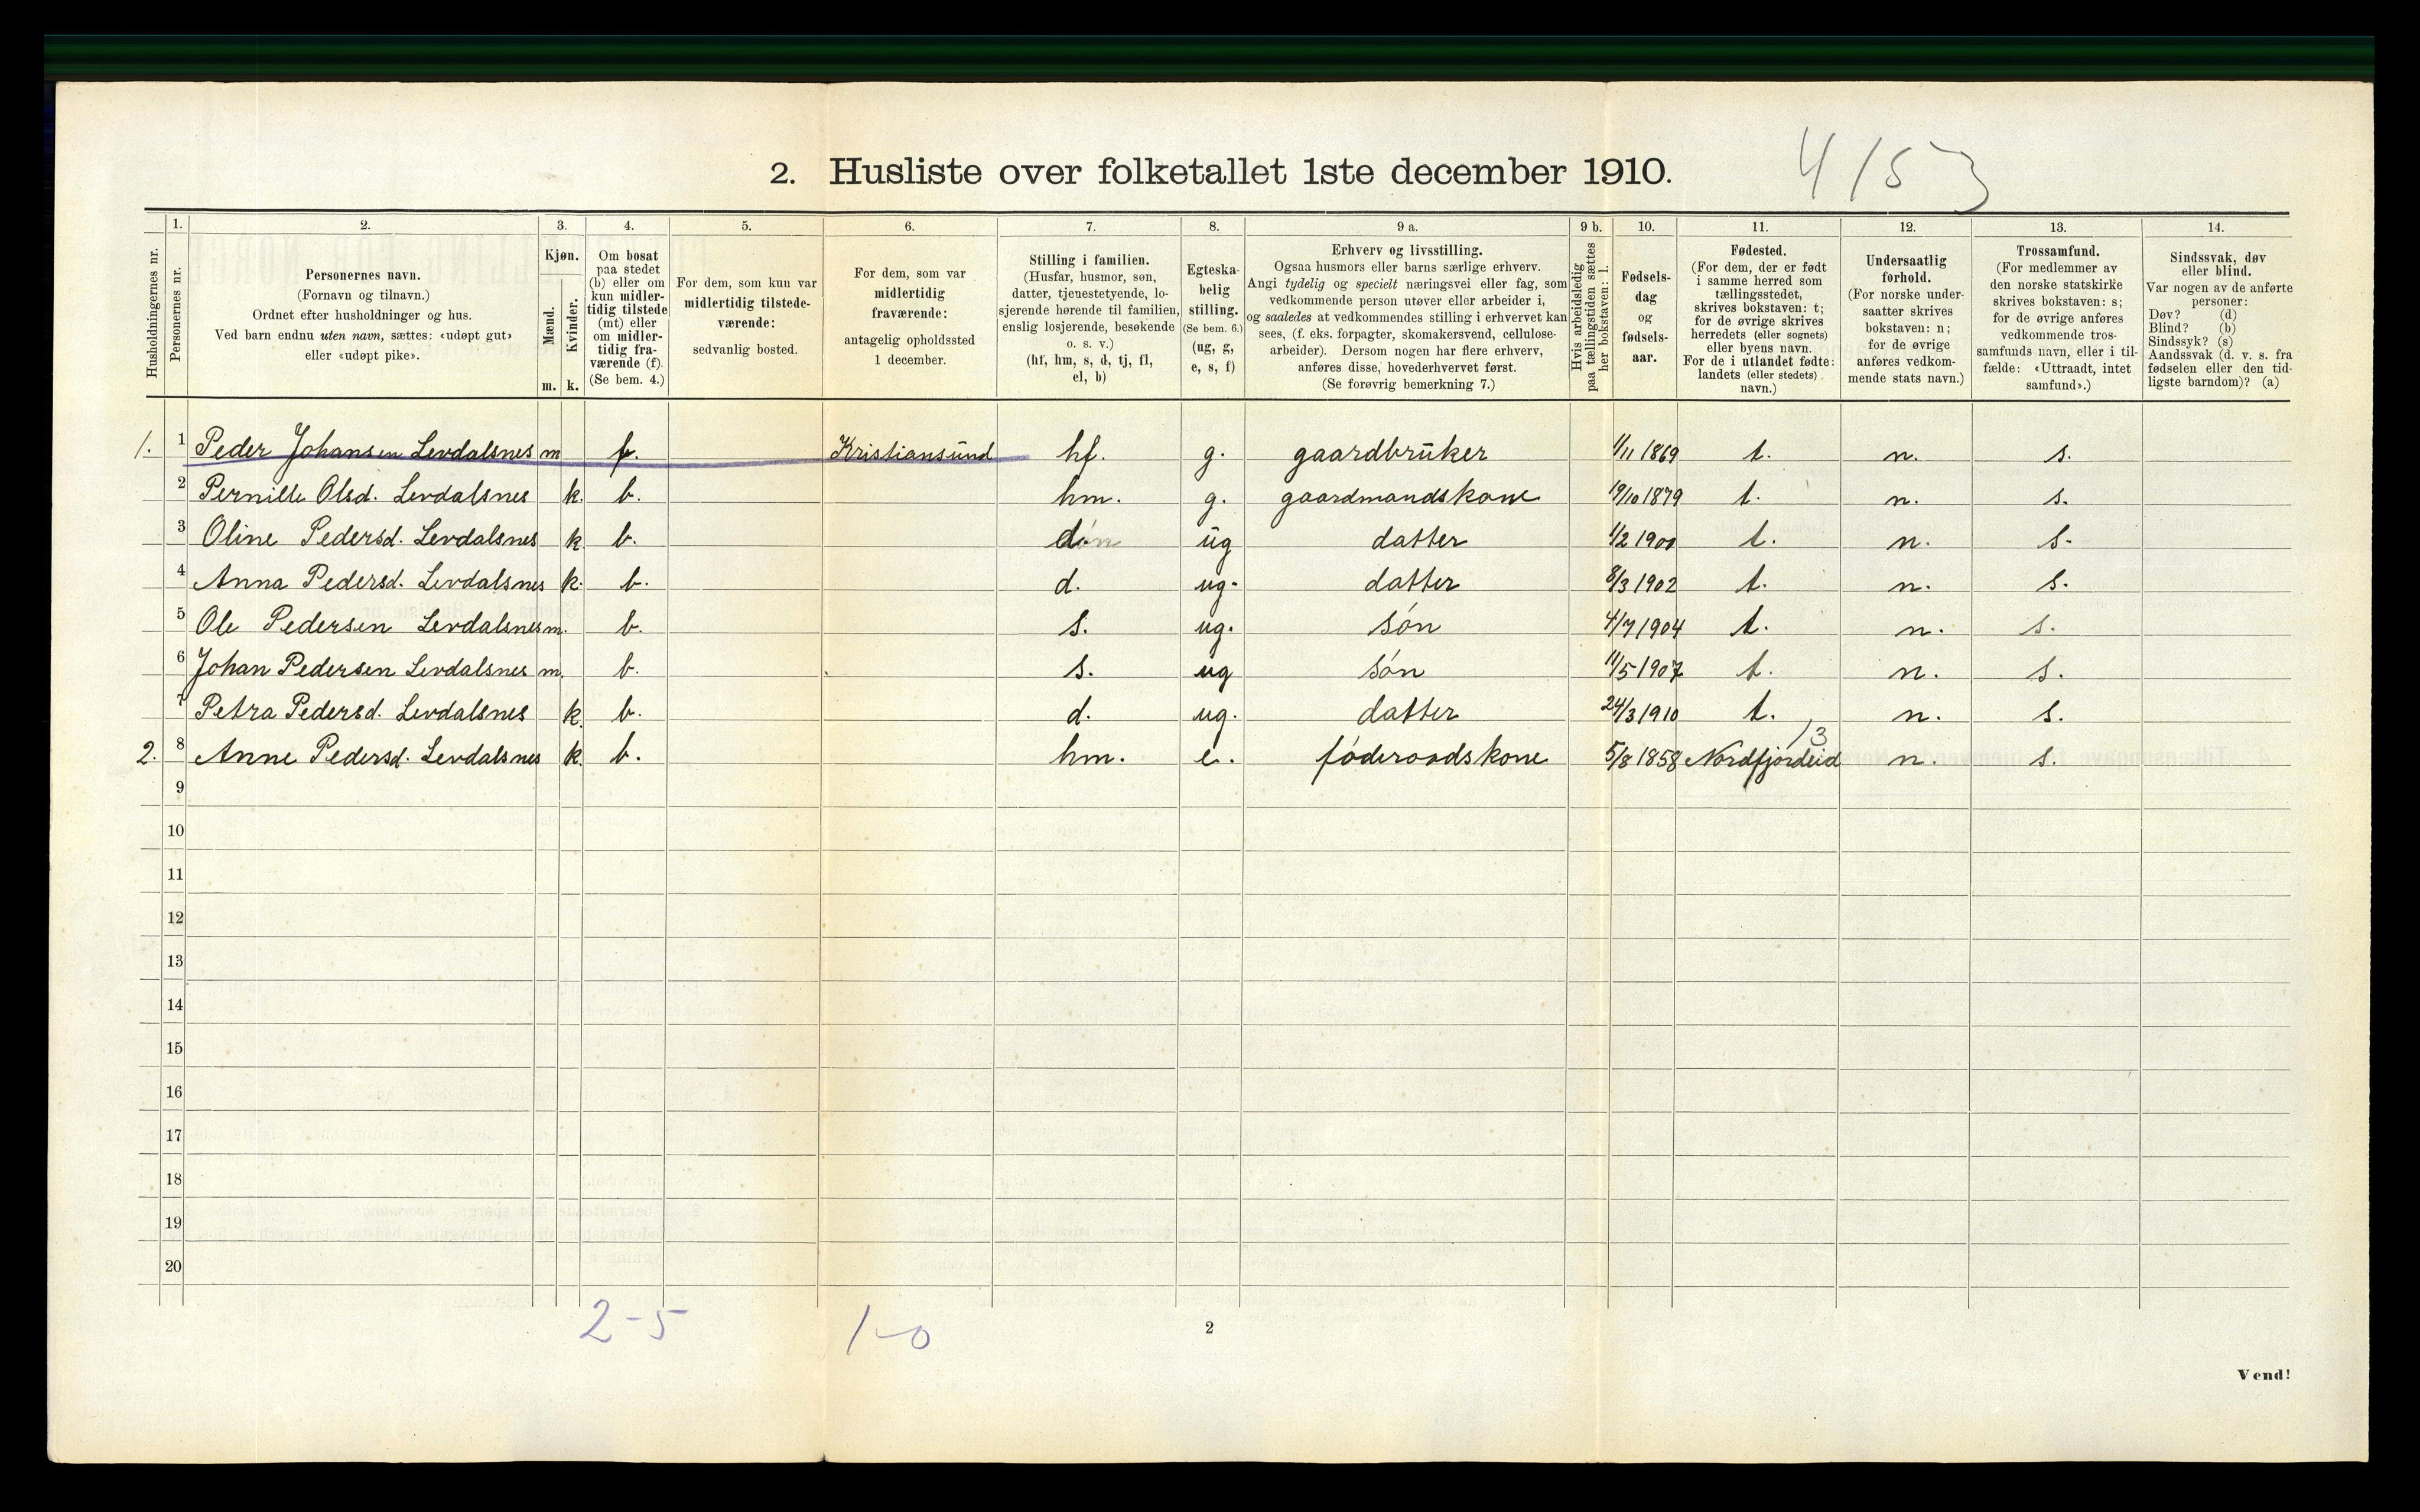 2. Husliste over folketallet 1ste december 1910.
4/53
Husholdningernes nr.
1. Personernes nr.
2. Personernes navn.
(Fornavn og tilnavn.)
Ordnet efter husholdninger og hus.
Ved barn endnu uten navn, sættes: «udøpt gut»
eller «udøpt pike».
3. Kjøn.
Mænd. m.
Kvinder. k.
4. Om bosat
paa stedet
(b) eller om
kun midler-
tidig tilstede
(mt) eller
om midler-
tidig fra-
værende (f).
(Se bem. 4.)
5. For dem, som kun var
midlertidig tilstede-
værende:
sedvanlig bosted.
6. For dem, som var
midlertidig
fraværende:
antagelig opholdssted
1 december.
7. Stilling i familien.
(Husfar, husmor, søn,
datter, tjenestetyende, lo-
sjerende hørende til familien,
enslig losjerende, besøkende
o. s. v.)
(hf, hm, s, d, tj, fl,
el, b)
8. Egteska-
belig
stilling.
(Se bem. 6.)
(ug, g,
e, s, f)
9 a. Erhverv og livsstilling.
Ogsaa husmors eller barns særlige erhverv.
Angi tydelig og specielt næringsvei eller fag, som
vedkommende person utøver eller arbeider i,
og saaledes at vedkommendes stilling i erhvervet kan
sees, (f. eks. forpagter, skomakersvend, cellulose-
arbeider). Dersom nogen har flere erhverv,
anføres disse, hovederhvervet først.
(Se forøvrig bemerkning 7.)
9 b. Hvis arbeidsledig
paa tællingstiden sættes
her bokstaven: l.
10. Fødsels-
dag
og
fødsels-
aar.
11. Fødested.
(For dem, der er født
i samme herred som
tællingsstedet,
skrives bokstaven: t;
for de øvrige skrives
herredets (eller sognets)
eller byens navn.
For de i utlandet fødte:
landets (eller stedets)
navn.)
12. Undersaatlig
forhold.
(For norske under-
saatter skrives
bokstaven: n;
for de øvrige
anføres vedkom-
mende stats navn.)
13. Trossamfund.
(For medlemmer av
den norske statskirke
skrives bokstaven: s;
for de øvrige anføres
vedkommende tros-
samfunds navn, eller i til-
fælde: «Uttraadt, intet
samfund».)
14. Sindssvak, døv
eller blind.
Var nogen av de anførte
personer:
Døv? (d)
Blind? (b)
Sindssyk? (s)
Aandssvak (d. v. s. fra
fødselen eller den tid-
ligste barndom)? (a)
1. 1 Peder Johansen Levdalsnes m f. Kristiansund hf. g. gaardbruker 1/11 1869 t. n. s.
2 Pernille Olsd. Levdalsnes k. b. hm. g. gaardmandskone 19/10 1879 t. n. s.
3 Oline Pedersd. Levdalsnes k b. d. ug datter 1/2 1900 t. n. s.
4 Anna Pedersd. Levdalsnes k. b. d. ug. datter 8/3 1902 t. n. s.
5 Ole Pedersen Levdalsnes m. b. s. ug. són 4/7 1904 t. n. s.
6 Johan Pedersen Levdalsnes m. b. s. ug són 11/5 1907 t. n. s.
7 Petra Pedersd. Levdalsnes k. b. d. ug. datter 24/3 1910 t. n. s.
13
2. 8 Anne Pedersd. Levdalsnes k. b. hm. e. fóderaadskone 5/8 1858 Nordfjordeid n. s.
9
10
11
12
13
14
15
16
17
18
19
20
2-5 1-0
2
Vend!